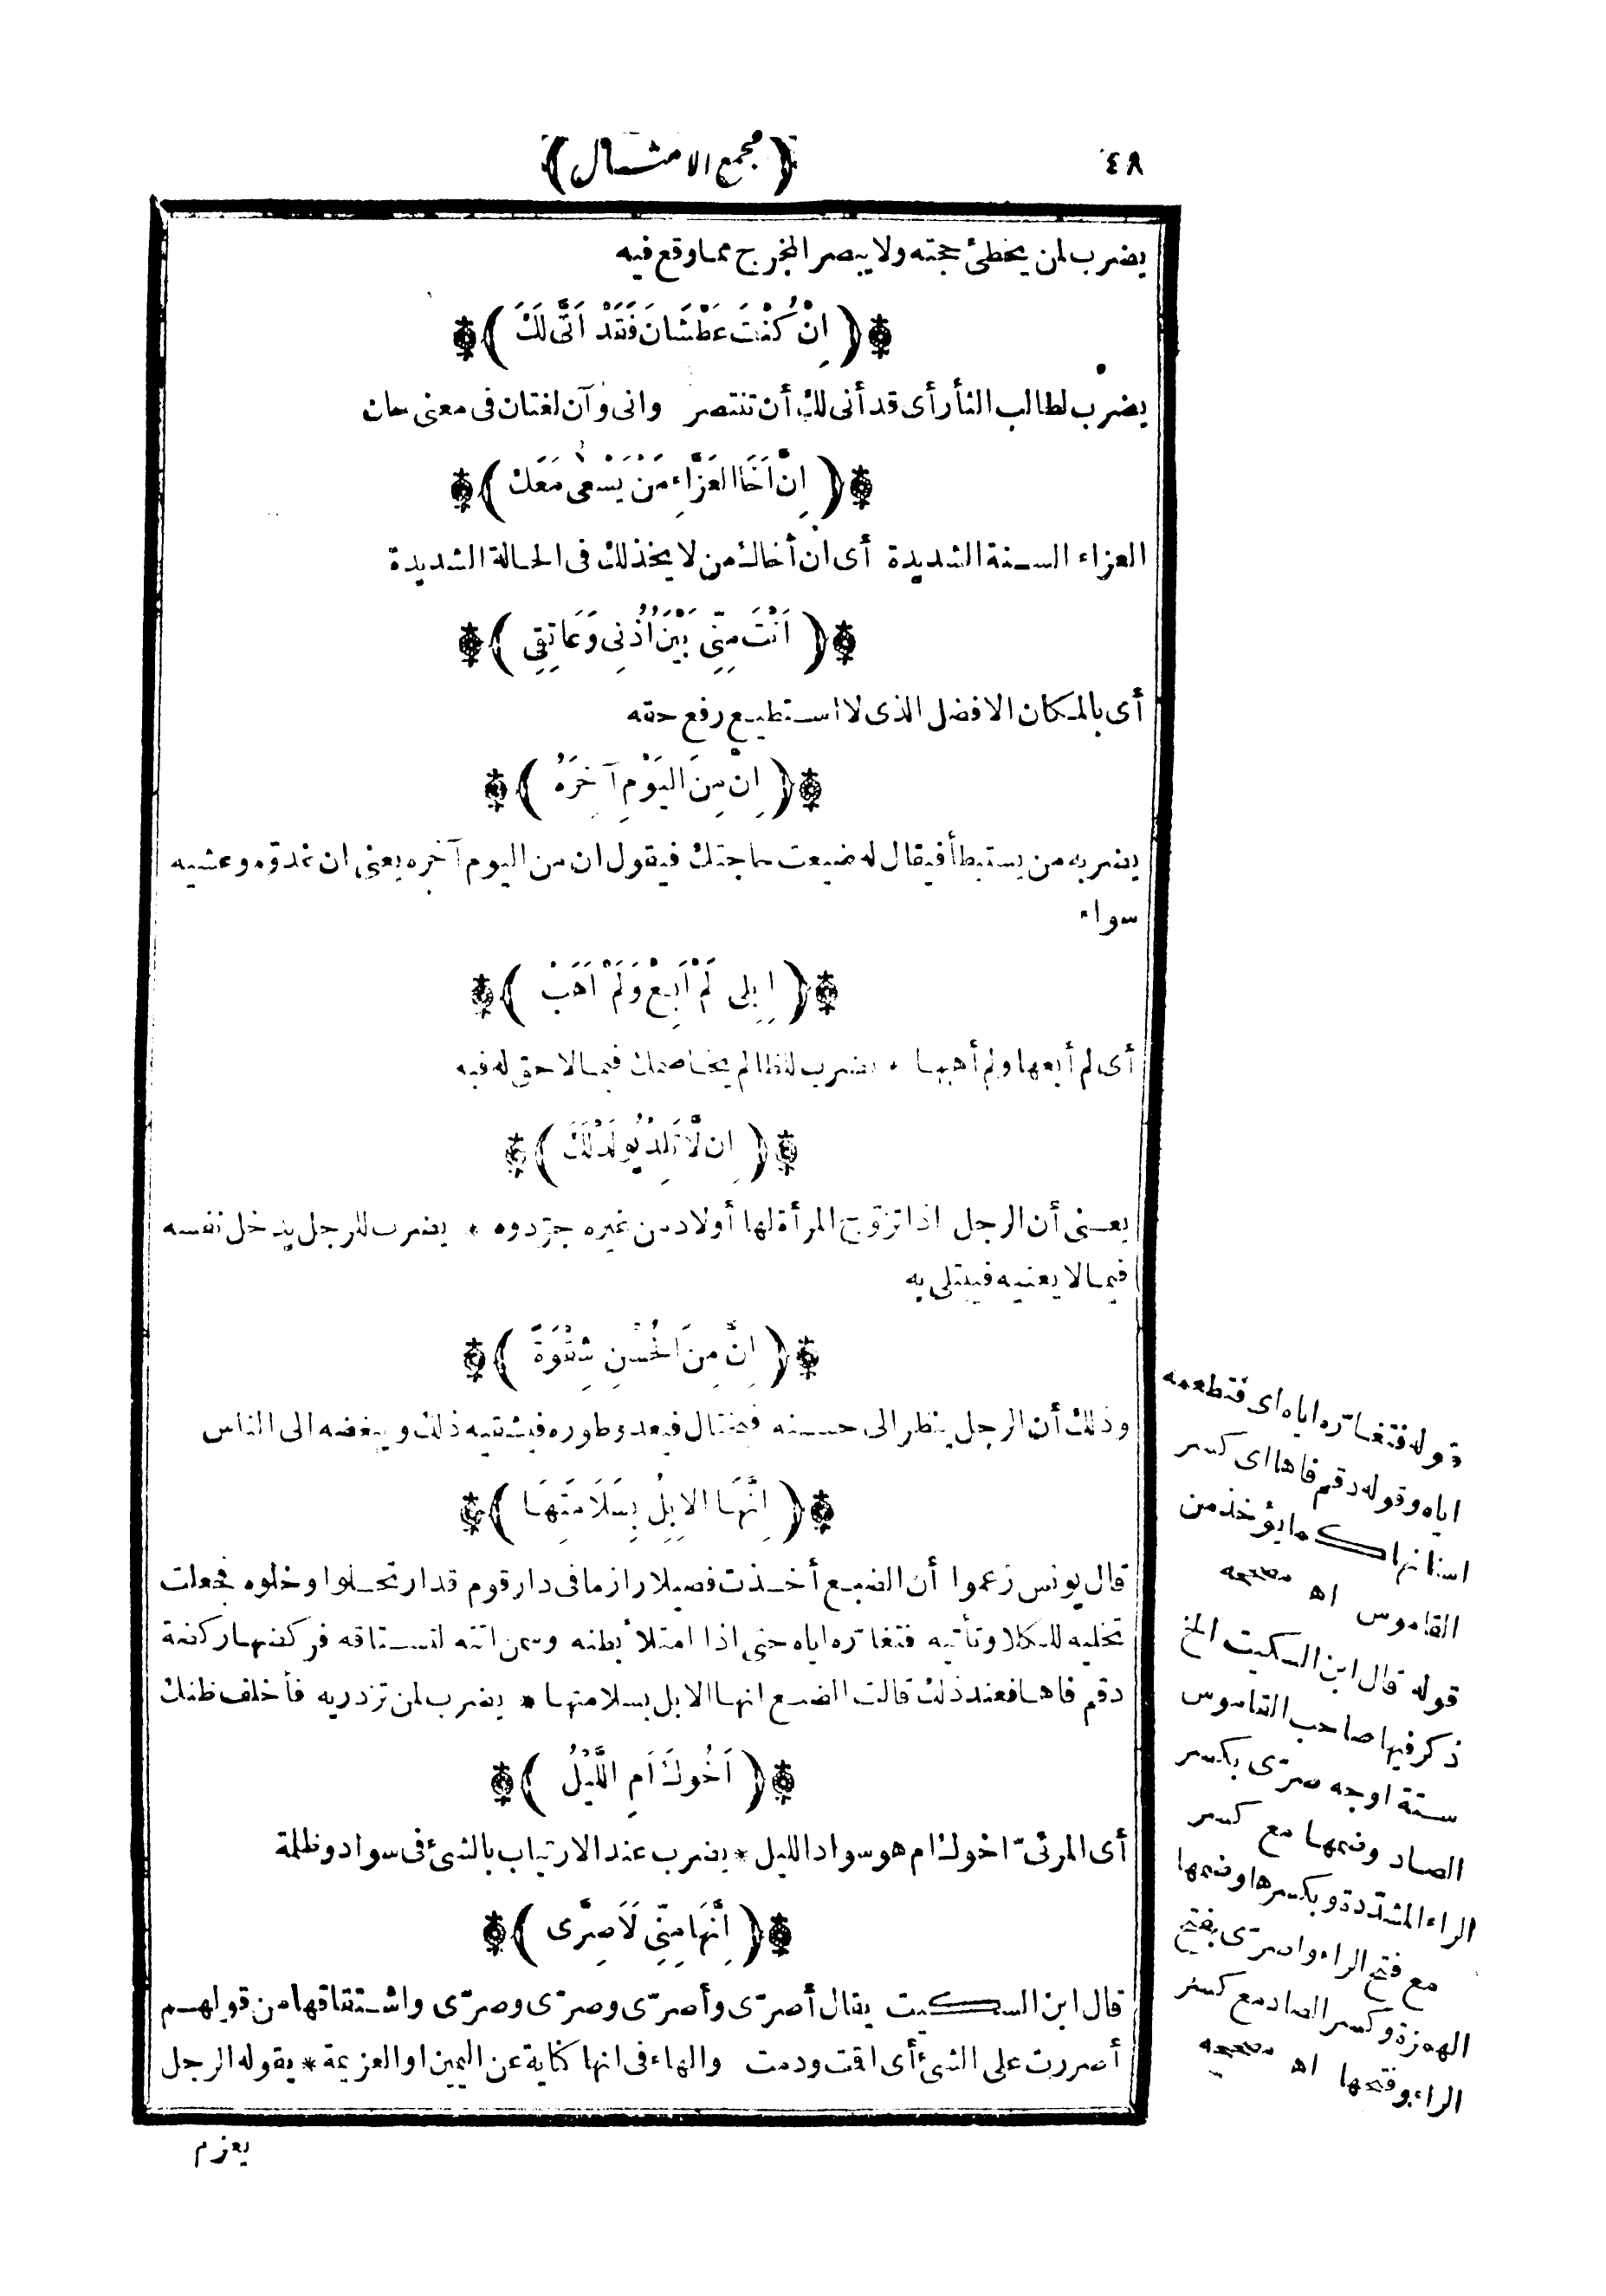 ٤٨
(مجمع الامثال)
يضرب لمن يخطئ حجته ولا يبصر المخرج مما وقع فيه
(اِنْ كُنْتَ عَطْشَانَ فَقَدْ اَنَّى لَكَ)
يضرب لطالب الثأر أى قد أنى لك أن تنتصر وانى وآن لغتان فى معنى حان
(اِنَّ اَخَا العَزَّاءِ مَنْ يَسْعٰى مَعَكَ)
العزاء السنة الشديدة أى ان أخاك من لا يخذلك فى الحالة الشديدة
(اَنْتَ مِنِّى بَيْنَ اُذُنِى وَعَاتِقِى)
أى بالمكان الافضل الذى لا استطيع رفع حقه
(اِنَّ مِنَ اليَوْمِ آخِرَهُ)
يضربه من يستبطأ فيقال له ضيعت حاجتك فيقول ان من اليوم آخره يعنى ان غدوّه وعشيه
سواء
(اِبِلِى لَمْ اَبِعْ وَلَمْ اَهَبْ)
أى لم أبعها ولم أهبها * يضرب للظالم يخاصمك فيما لا حق له فيه
(اِن لَّا تَلِدْ يُولَدْ لَكَ)
يعنى أن الرجل اذا تزوّج المرأة لها أولاد من غيره جرّدوه * يضرب للرجل يدخل نفسه
فيما لا يعنيه فيبتلى به
(اِنَّ مِنَ الحُسْنِ شِقْوَةً)
وذلك أن الرجل ينظر الى حسنه فيختال فيعدو طوره فيشقيه ذلك ويبغضه الى الناس
(اِنَّهَا الاِبِلُ بِسَلَامَتِهَا)
قال يونس زعموا أن الضبع أخذت فصيلا رازما فى دار قوم قد ارتحلوا وخلوه فجعلت
تخليه للكلا وتأتيه فتغارّه اياه حتى اذا امتلأ بطنه وسمن اتته لتستاقه فركضها ركضة
دقم فاها فعند ذلك قالت الضبع انها الابل بسلامتها * يضرب لمن تزدريه فأخلف ظنك
(اَخُوكَ اَمِ اللَّيْلُ)
أى المرئىّ اخوك ام هو سواد الليل * يضرب عند الارتياب بالشئ فى سواد وظلمة
(اِنَّهَا مِنِّى لَاَصِرَّى)
قال ابن السكيت يقال أصرّى وأصرّى وصرّى وصرّى واشتقاقها من قولهم
أصررت على الشئ أى اقمت ودمت والهاء فى انها كناية عن اليمين او العزيمة * يقوله الرجل
يعزم
قوله فتغارّه اياه اى فتطعمه
اياه وقوله دقم فاها اى كسر
اسنانها كما يؤخذ من
القاموس اه مصححه
قوله قال ابن السكيت الخ
ذكر فيها صاحب القاموس
ستة اوجه صرّى بكسر
الصاد وضمها مع كسر
الراء المشدّدة وبكسرها وضمها
مع فتح الراء واصرّى بفتح
الهمزة وكسر الصاد مع كسر
الراء وفتحها اه مصححه